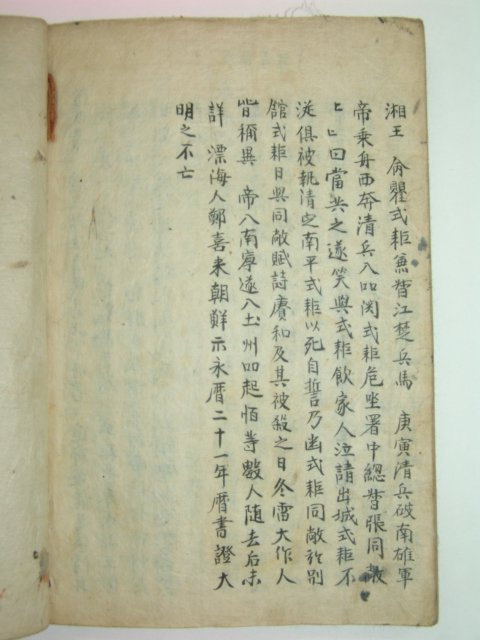 湘王 命瞿式耜兼督江楚兵馬 庚寅清兵破南雄軍
帝乘舟西奔清兵入如関式耜危坐署中總督張同敞
曰當共之遂笑與式耜飲家人泣請出城式耜不
從俱被執清定南平式耜以死自誓乃幽式耜同敞於别
舘式耜日與同敵賦詩賡和及其被殺之日冬雷大作人
皆稱異 帝入南寧遂入土州如起恒等數人随去后未
詳 漂海人鄭喜来朝鮮示永暦二十一年暦書證大
明之不亡